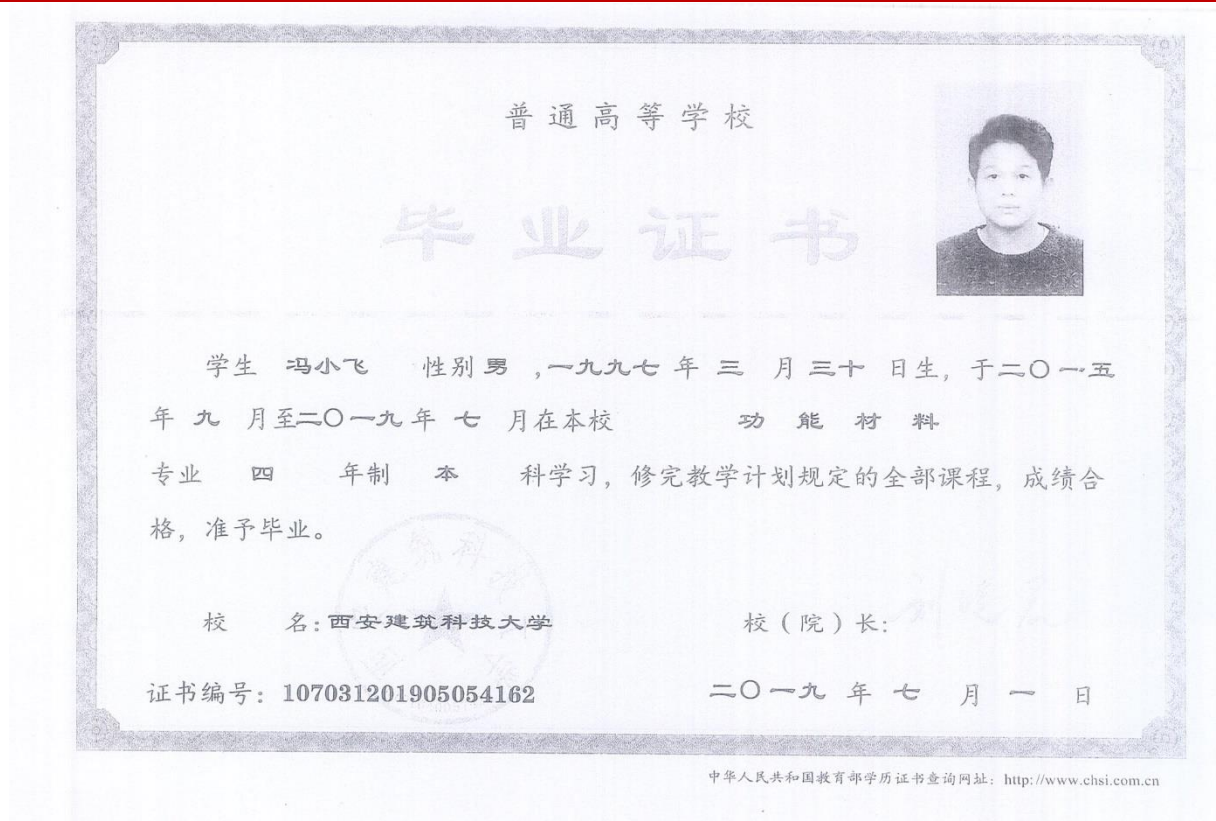 普通高等学校
毕业证书
学生 冯小飞 性别 男 ,一九九七 年 三 月 三十 日生, 于二〇一五
年 九 月至二〇一九年 七 月在本校 功能材料
专业 四 年制 本 科学习, 修完教学计划规定的全部课程, 成绩合
格, 准予毕业。
校 名: 西安建筑科技大学 校(院)长:
证书编号: 107031201905054162 二〇一九 年 七 月 一 日
中华人民共和国教育部学历证书查询网址: http://www.chsi.com.cn